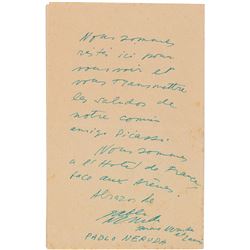 Nous sommes
restés ici pour
vous voir et
vous transmettre
les saludos de
notre común
amigo Picasso.
Nous sommes
a l'Hotel de France,
face aux Arènes.
Abrazo de
Pablo
PABLO NERUDA